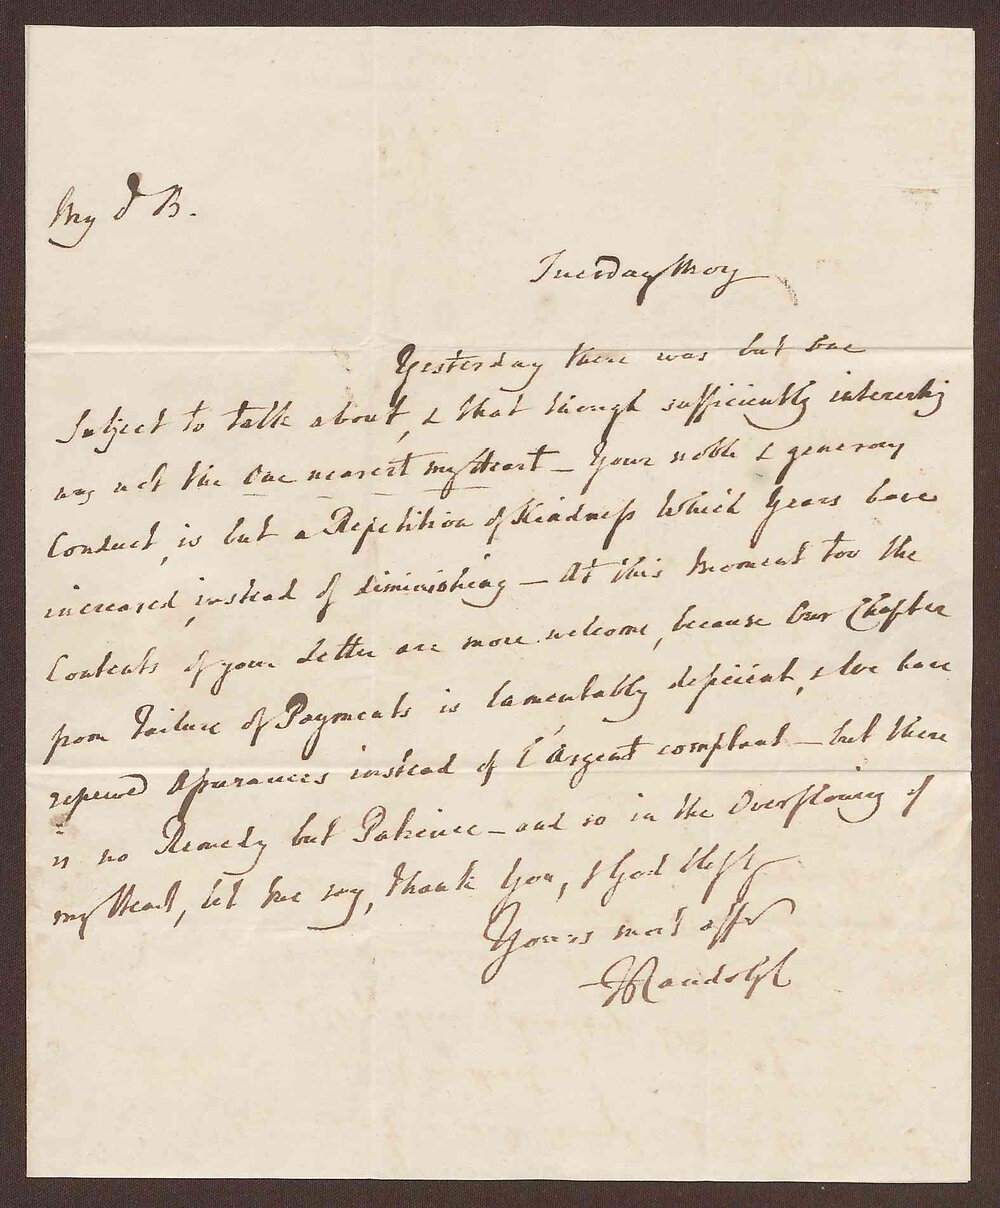 My d B.
Tuesday Mor͞g
Yesterday there was but one
Subject to talk about, & that though sufficiently interesting
was not the One nearest my Heart – Your noble & generous
Conduct, is but a Repetition of Kindness which Years have
increased, instead of diminishing – At this Moment too the
Contents of your Letter are more welcome, because Our Chapter
from Failure of Payments is lamentably deficient, & We have
Assurances instead of l'Argent comptant – but there
is no Remedy but Patience – and so in the Overflowing of
my Heart, let me say, thank You, & God bless
Yours most aff
JRandolph